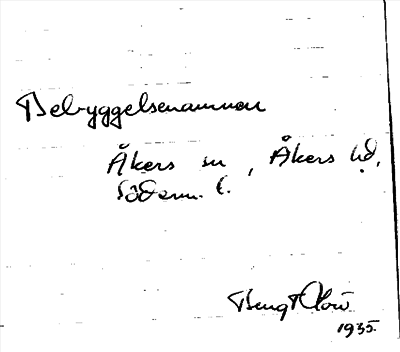 Bebyggelsenamnen
Åkers sn, Åkers hd,
Söderm. l.
Bengt
1935.